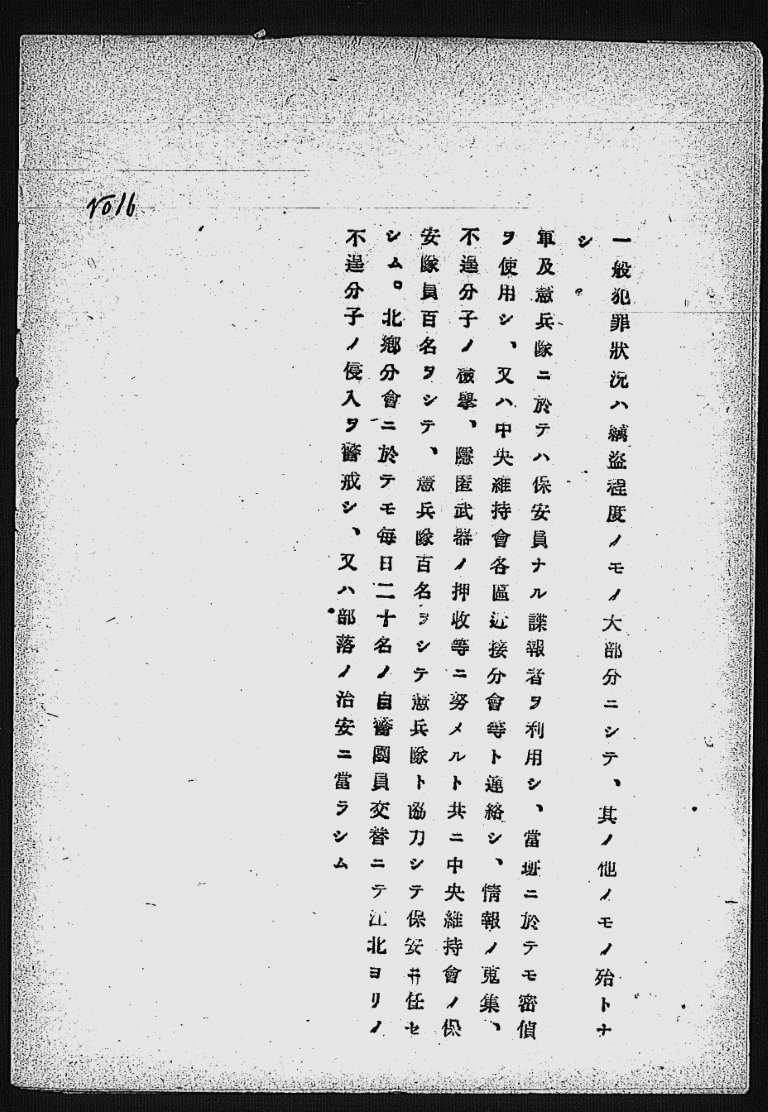 No16
一般犯罪狀況ハ竊盜程度ノモノ大部分ニシテ、其ノ他ノモノ殆トナ
シ。
軍及憲兵隊ニ於テハ保安員ナル諜報者ヲ利用シ、當班ニ於テモ密偵
ヲ使用シ、又ハ中央維持會各區近接分會等ト連絡シ、情報ノ蒐集、
不逞分子ノ檢擧、隱匿武器ノ押收等ニ努メルト共ニ中央維持會ノ保
安隊員百名ヲシテ、憲兵隊百名ヲシテ憲兵隊ト協力シテ保安ニ任セ
シム。北鄕分會ニ於テモ每日二十名ノ自警團員交替ニテ江北ヨリノ
不逞分子ノ侵入ヲ警戒シ、又ハ部落ノ治安ニ當ラシム